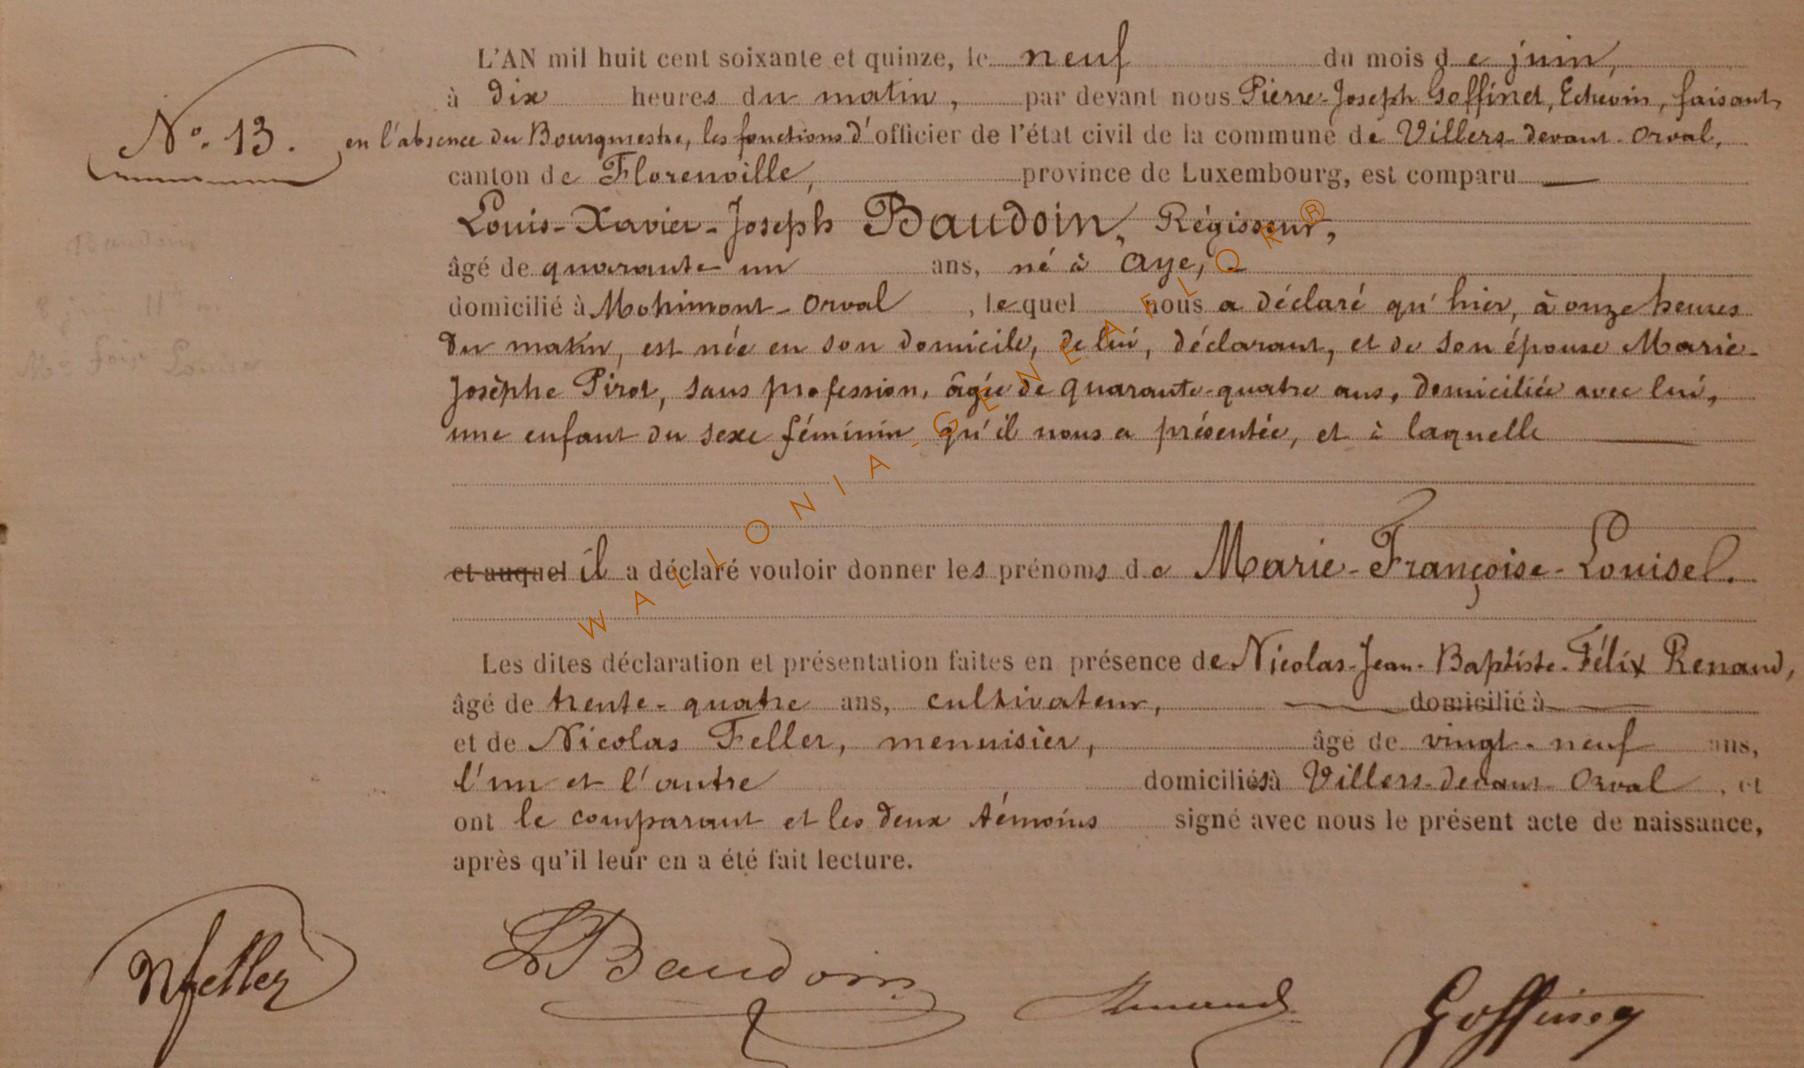 L'AN mil huit cent soixante et quinze, le neuf du mois de juin,
à dix heures du matin, par devant nous Pierre-Joseph Goffinet, Echevin, faisant,
N°. 13. en l'absence du Bourgmestre, les fonctions d'officier de l'état civil de la commune de Villers-devant-Orval,
canton de Florenville, province de Luxembourg, est comparu
Louis-Xavier-Joseph Baudoin, Régisseur,
âgé de quarante-un ans, né à Aye,
domicilié à Mohimont-Orval, lequel nous a déclaré qu'hier, à onze heures
du matin, est née en son domicile, de lui, déclarant, et de son épouse Marie-
Josèphe Pirot, sans profession, âgée de quarante-quatre ans, domiciliée avec lui,
une enfant du sexe féminin qu'il nous a présentée, et à laquelle
et auquel il a déclaré vouloir donner les prénoms de Marie-Françoise-Louise.
Les dites déclaration et présentation faites en présence de Nicolas-Jean-Baptiste-Félix Renaud,
âgé de trente-quatre ans, cultivateur, domicilié à
et de Nicolas Feller, menuisier, âgé de vingt-neuf ans,
l'un et l'autre domiciliés à Villers-devant-Orval, et
ont le comparant et les deux témoins signé avec nous le présent acte de naissance,
après qu'il leur en a été fait lecture.
NFeller LBaudoin Renaud Goffinet
WALLONIA-GENEAFLOR®